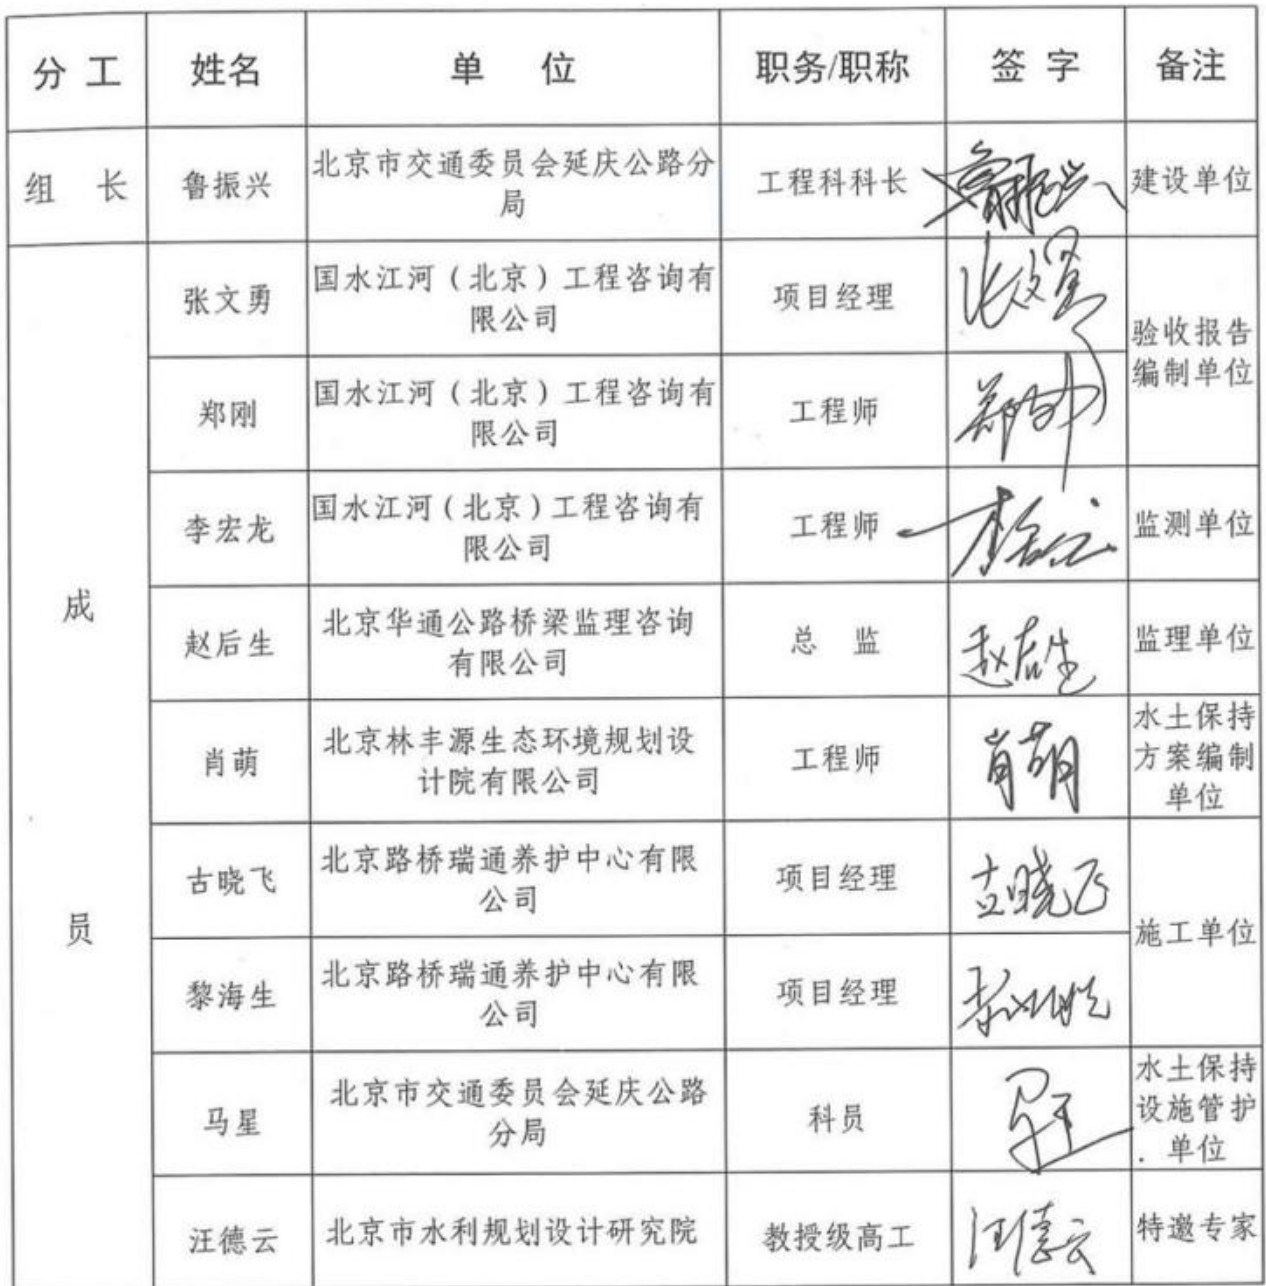 分 工 姓名 单 位 职务/职称 签 字 备注
组 长 鲁振兴 北京市交通委员会延庆公路分
局 工程科科长 鲁振兴 建设单位
成
员
张文勇 国水江河(北京)工程咨询有
限公司 项目经理 张文勇
验收报告
编制单位
郑刚 国水江河(北京)工程咨询有
限公司 工程师
李宏龙 国水江河(北京)工程咨询有
限公司 工程师 监测单位
赵后生 北京华通公路桥梁监理咨询
有限公司 总 监 赵后生 监理单位
肖萌 北京林丰源生态环境规划设
计院有限公司 工程师 肖萌
水土保持
方案编制
单位
古晓飞 北京路桥瑞通养护中心有限
公司 项目经理 古晓飞
施工单位
黎海生 北京路桥瑞通养护中心有限
公司 项目经理
马星 北京市交通委员会延庆公路
分局 科员
水土保持
设施管护
单位
汪德云 北京市水利规划设计研究院 教授级高工 汪德云 特邀专家